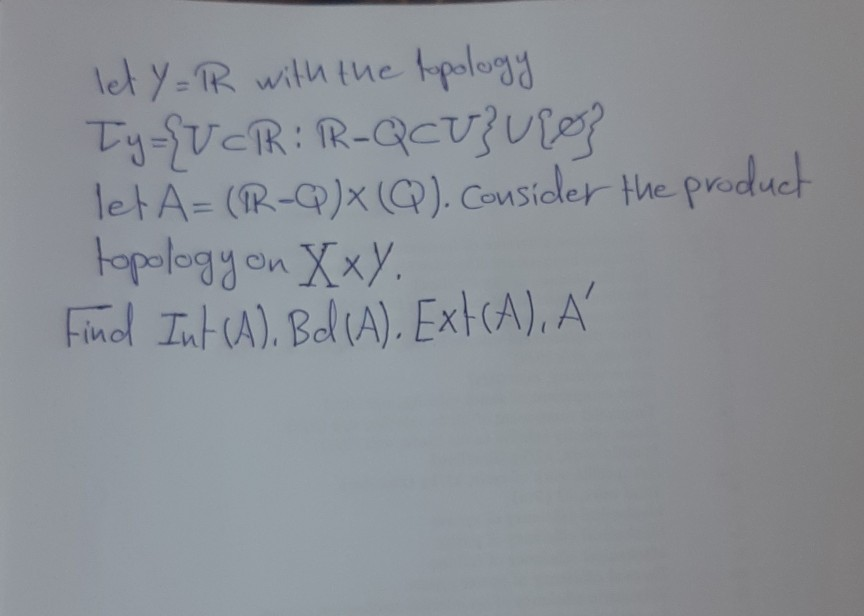 let Y = ℝ with the topology
τy={U⊂ℝ: ℝ-Q⊂U}∪{∅}
let A = (ℝ-Q)×(Q). Consider the product
topology on X×Y.
Find Int(A). Bd(A). Ext(A), A'